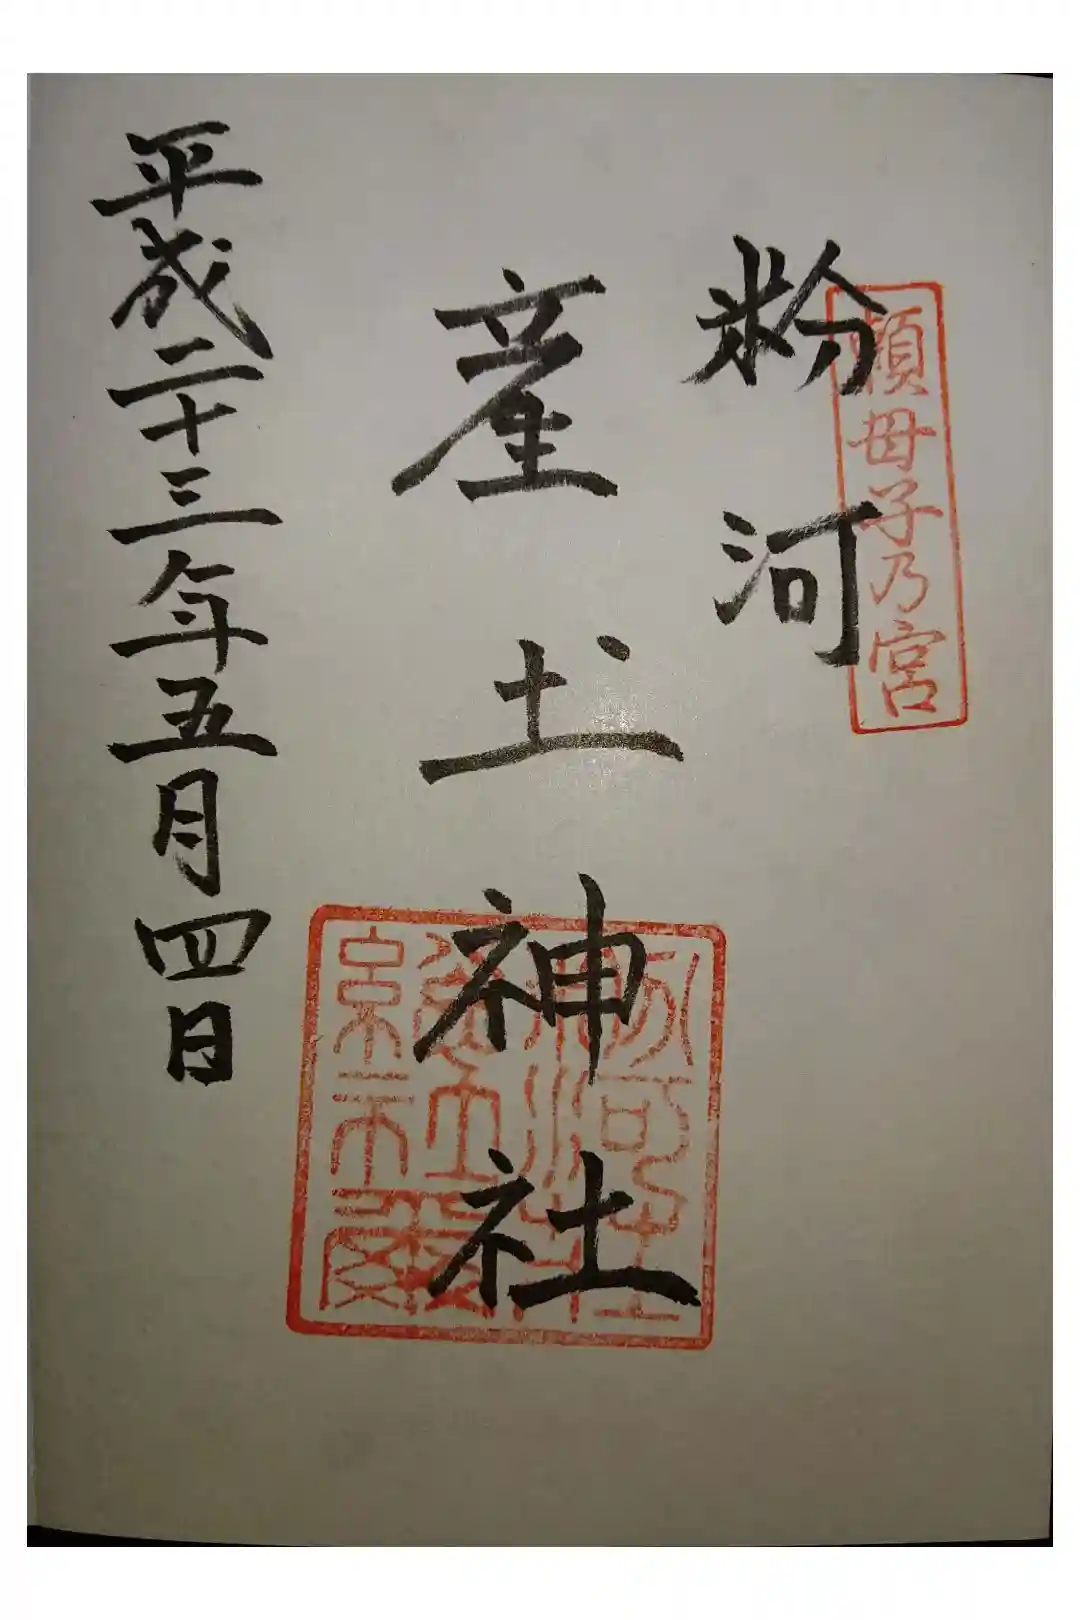 頼母子乃宮
粉河
産土神社
平成二十三年五月四日